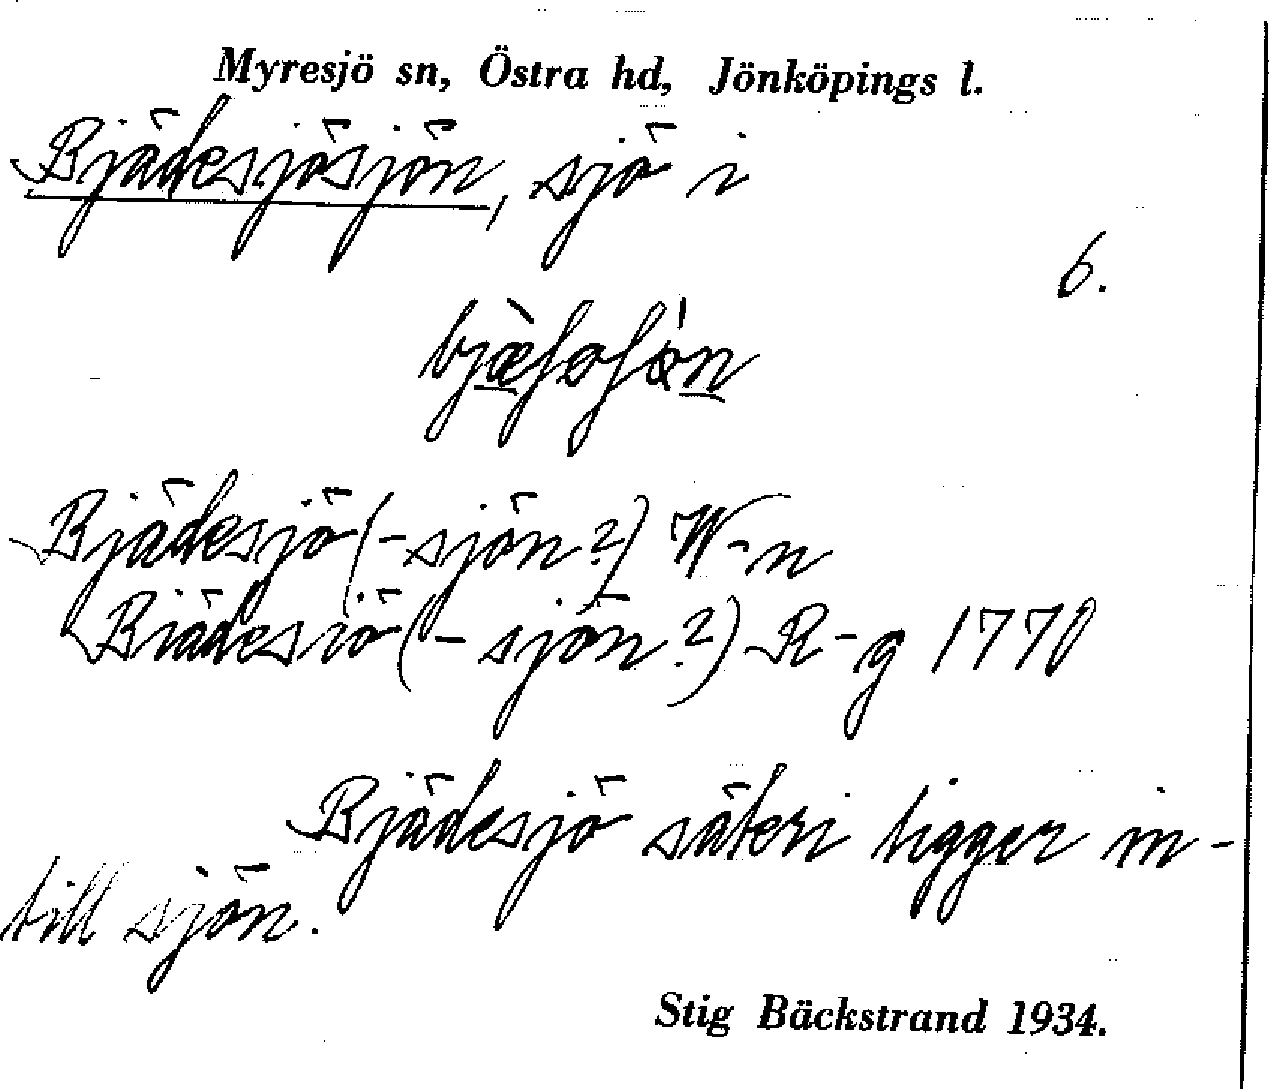 Myresjö sn, Östra hd, Jönköpings l.
Bjädesjösjön, sjö i
6.
Bjädesjö (-sjön?) W-n
Biädesiö (-sjön?) R-g 1770
Bjädesjö säteri ligger in-
till sjön.
Stig Bäckstrand 1934.